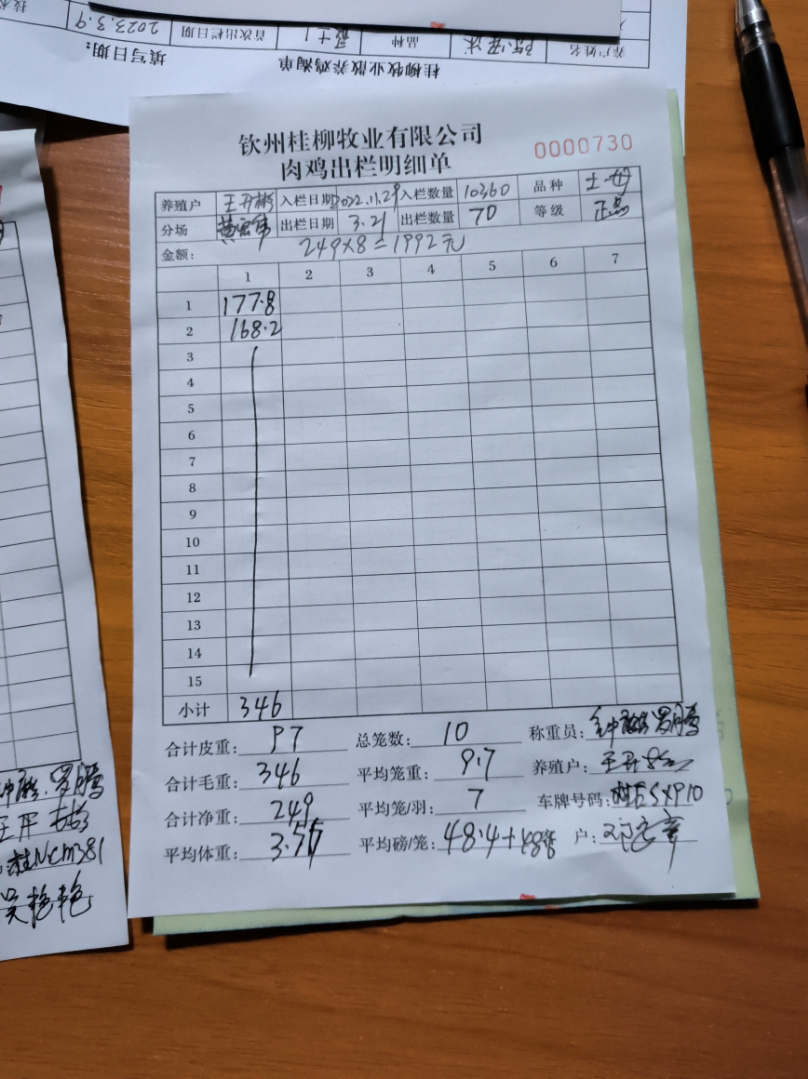 2023.3.9
首次出栏日期
品种
养户姓名
填写日期:
桂柳牧业散养鸡淘单
钦州桂柳牧业有限公司
肉鸡出栏明细单
0000730
养殖户 王开彬 入栏日期 2022.11.29 入栏数量 10360 品种 土一母
分场 出栏日期 3.21 出栏数量 70 等级 正品
金额: 249×8=1992元
1 2 3 4 5 6 7
1 177.8
2 168.2
3
4
5
6
7
8
9
10
11
12
13
14
15
小计 346
合计皮重: 97 总笼数: 10 称重员:
合计毛重: 346 平均笼重: 9.7 养殖户: 王开彬
合计净重: 249 平均笼/羽: 7 车牌号码:
平均体重: 3.55 平均磅/笼: 48.4+ 户: